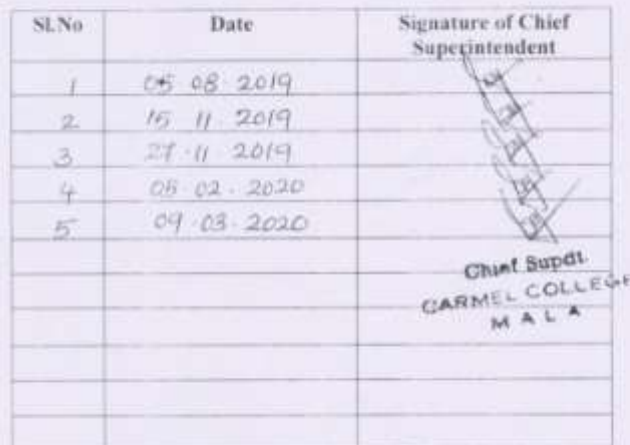 Sl.No Date Signature of Chief
Superintendent
1 05 08 2019
2 15 11 2019
3 27.11 2019
4 05.02.2020
5 09.03.2020
Chief Supdt.
CARMEL COLLEGE
MALA